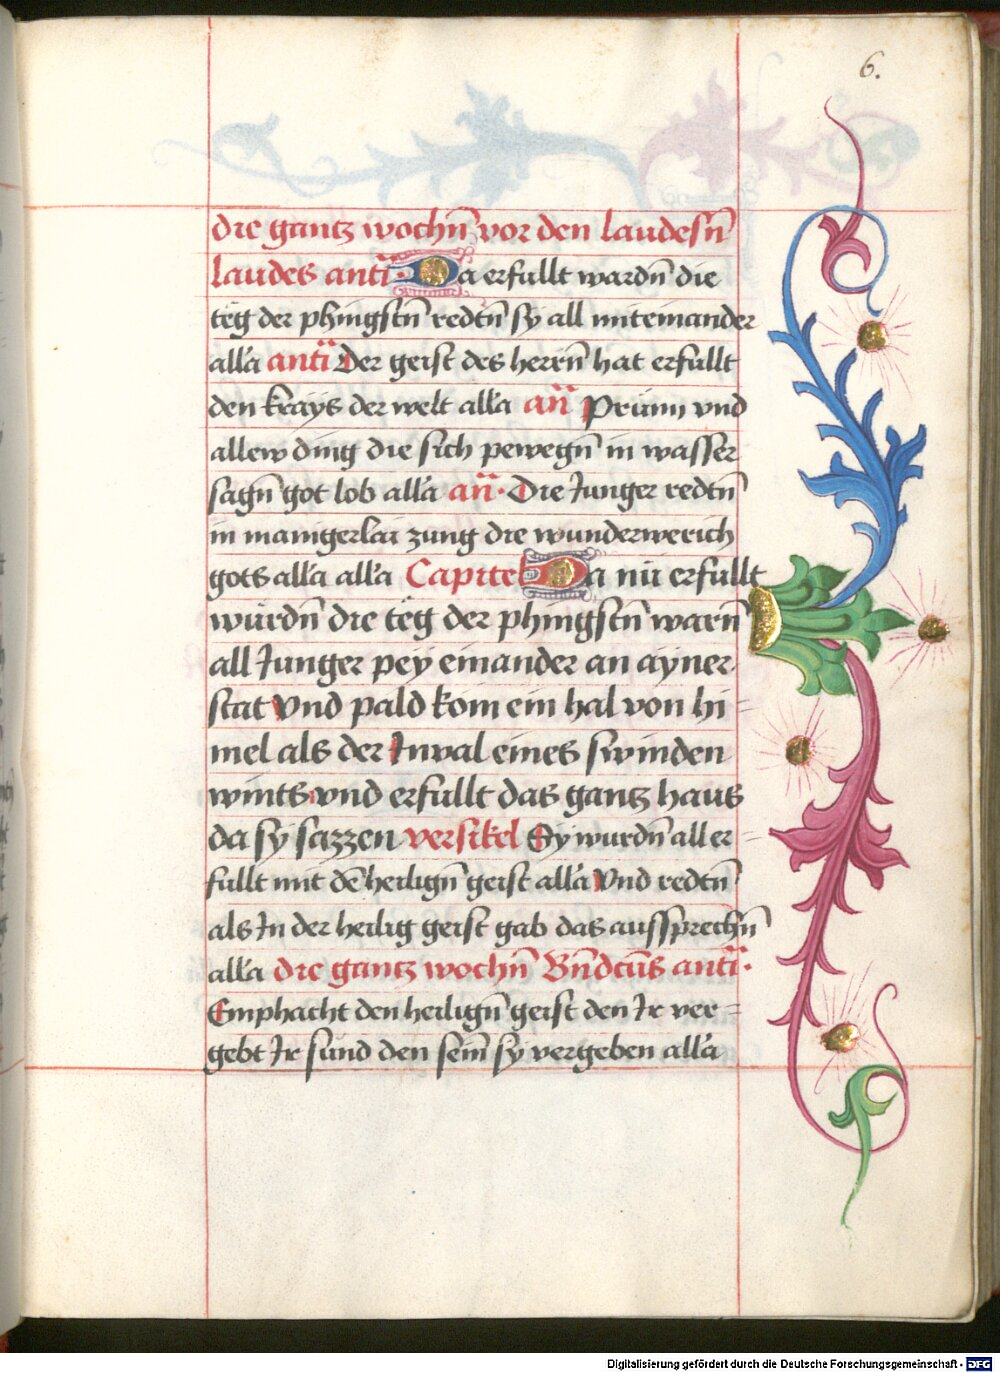 6.
die gantz wochn̄ vor den laudesn̄
laudes anti᷑· Da erfullt wardn̄ die
teg der phingstn̄ redtn̄ sy all miteinander
all'a anti᷑ Der geist des herrn̄ hat erfullt
den krays der welt all'a an̄ Prünn vnd
allew ding die sich pewegn̄ in wasser
sagn̄ got lob all'a an̄· Die Junger redtn̄
in manigerlai zung die wunderwerich
gots all'a all'a Capitel Da nu erfullt
wurdn̄ die teg der phingstn̄ warn̄
all Junger pey einander an ayner
stat Vnd pald kom ein hal von hi=
mel als der Inval eines swinden
wints vnd erfullt das gantz haus
da sy sazzen versikel Sy wurdn̄ all er=
fullt mit dē heilign̄ geist all'a Vnd redtn̄
als In der heilig geist gab das aussprechn̄
all'a die gantz wochn̄ Bn̄dctūs anti᷑·
Emphacht den heilign̄ geist den Ir ver=
gebt Ir sund den sein̄ sy vergeben all'a
Digitalisierung gefördert durch die Deutsche Forschungsgemeinschaft - DFG